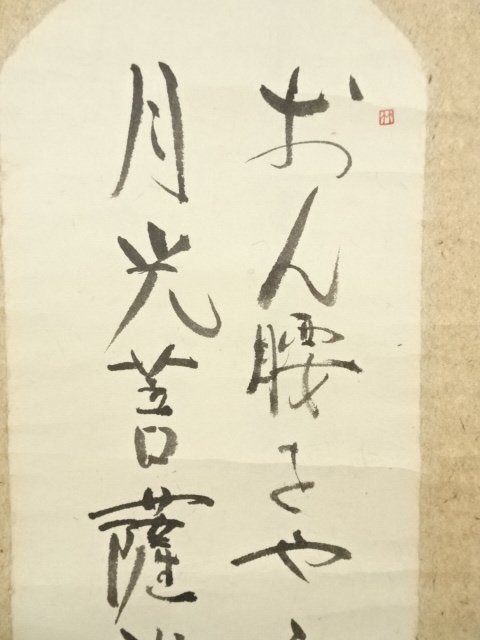 おん腰きや
月光菩薩